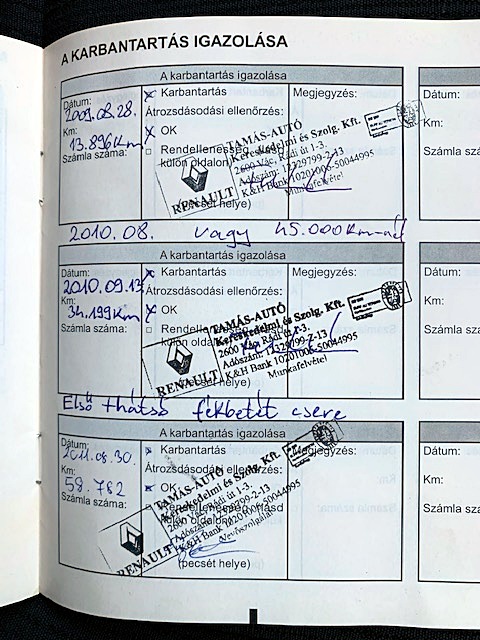 A KARBANTARTÁS IGAZOLÁSA
A karbantartás igazolása
Dátum:
2009.08.28.
Km:
13.896Km
Számla száma:
x Karbantartás
Átrozsdásodási ellenőrzés:
x OK
Rendellenesség
külön oldalon)
Megjegyzés:
TAMÁS-AUTÓ
Kereskedelmi és Szolg. Kft.
2600 Vác, Rádi út 1-3.
Adószám: 12329799-2-13
K&H Bank 10201006-50044995
Munkafelvétel
RENAULT
(pecsét helye)
Dátum:
Km:
Számla szá
2010.08. vagy 45.000km-nél
A karbantartás igazolása
Dátum:
2010.09.13
Km:
34.199Km
Számla száma:
x Karbantartás
Átrozsdásodási ellenőrzés:
x OK
Rendellenesség
külön oldalon
Megjegyzés:
TAMÁS-AUTÓ
Kereskedelmi és Szolg. Kft.
2600 Vác, Rádi út 1-3.
Adószám: 12329799-2-13
K&H Bank 10201006-50044995
Munkafelvétel
RENAULT
(pecsét helye)
Dátum:
Km:
Számla szá
Első + hátsó fékbetét csere
A karbantartás igazolása
Dátum:
2011.08.30.
Km:
58.782
Számla száma:
x Karbantartás
Átrozsdásodási ellenőrzés:
x OK
Rendellenesség
külön oldalon
Megjegyzés:
TAMÁS-AUTÓ
Kereskedelmi és Szolg. Kft.
2600 Vác, Rádi út 1-3.
Adószám: 12329799-2-13
K&H Bank 10201006-50044995
Vevőszolgálat
RENAULT
(pecsét helye)
Dátum:
Km:
Számla szá